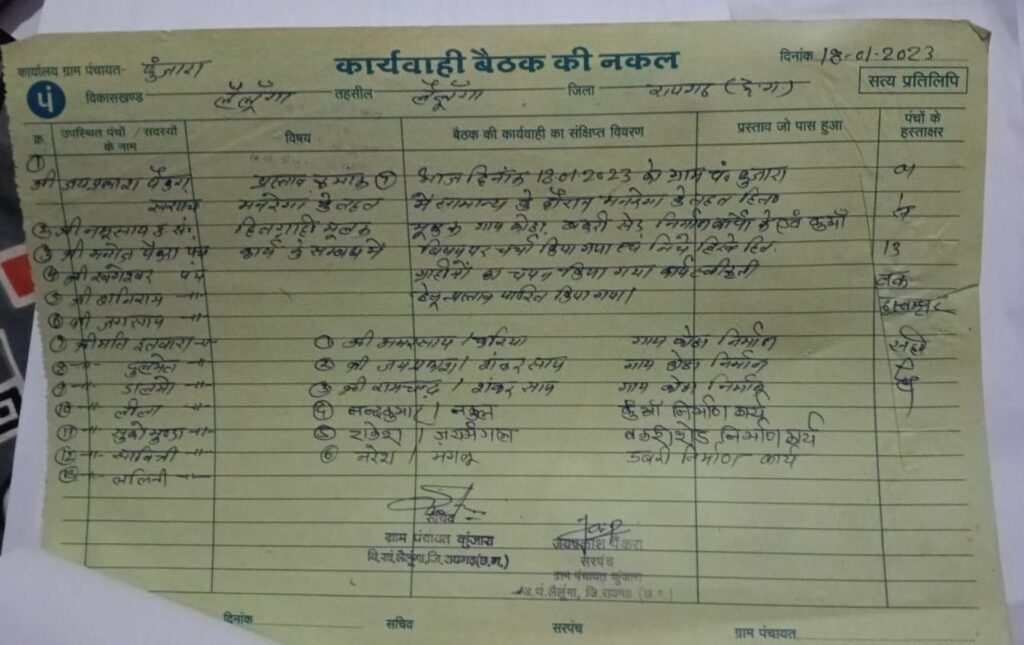 कार्यवाही बैठक की नकल
दिनांक 18-01-2023
कार्यालय ग्राम पंचायत- कुंजारा
सत्य प्रतिलिपि
पं
विकासखण्ड लैलूँगा तहसील लैलूँगा जिला रायगढ़ (छ.ग.)
क्र. उपस्थित पंचों / सदस्यों के नाम विषय बैठक की कार्यवाही का संक्षिप्त विवरण प्रस्ताव जो पास हुआ पंचों के हस्ताक्षर
① श्री जयप्रकाश पैंकरा प्रस्ताव क्रमांक ① आज दिनांक 18.01.2023 को ग्राम पं. कुंजारा
सरपंच मनरेगा के तहत में सामान्य के दौरान मनरेगा के तहत
हितग्राही मूलक गाय कोठा, बकरी सेड, निर्माण कार्यों के एवं कुआँ
③ श्री मनोज पैंकरा पंच कार्य के सम्बंध में विषय पर चर्चा किया गया 13
④ श्री खगेश्वर पंच का चयन किया गया कार्य स्वीकृती तक
⑤ श्री शनिराम -"- प्रस्ताव पारित किया गया। हस्ताक्षर
⑥ श्री जगसाय -"-
⑦ श्रीमति इतवारा -"- ① श्री अमरसाय / गाय कोठा निर्माण सही
⑧ -"- ② श्री जयप्रकाश / शंकर साय गाय कोठा निर्माण
⑨ -"- ③ श्री रामचन्द्र / शंकर साय गाय कोठा निर्माण
⑩ -"- लीला ④ नन्दकुमार / नकुल कुँआ निर्माण कार्य
⑪ -"- -"- ⑤ राकेश / बकरी शेड निर्माण कार्य
⑫ -"- सावित्री -"- ⑥ नरेश / मंगलू डबरी निर्माण कार्य
⑬ -"- ललिनी -"-
सचिव
ग्राम पंचायत कुंजारा
वि.खं.लैलूंगा,जि.रायगढ़(छ.ग.)
जयप्रकाश पैंकरा
सरपंच
ग्राम पंचायत कुंजारा
ज.पं.लैलूंगा, जि.रायगढ़ (छ.ग.)
दिनांक सचिव सरपंच ग्राम पंचायत